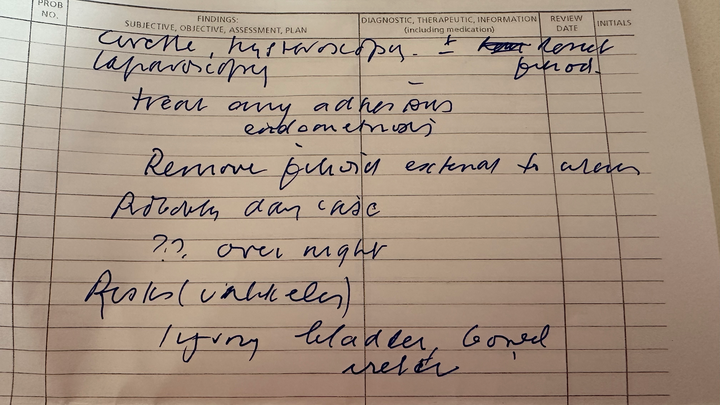 PROB NO.
FINDINGS:
SUBJECTIVE, OBJECTIVE, ASSESSMENT, PLAN
DIAGNOSTIC, THERAPEUTIC, INFORMATION
(including medication)
REVIEW DATE
INITIALS
curette, hysteroscopy. ±
laparoscopy
treat any adhesions
endometriosis
Remove fibroid external to uterus
Probably day case
??. over night
Risks (unlikely)
Injury bladder, bowel
ureter